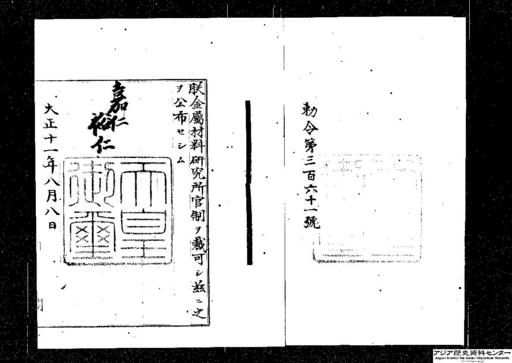 勅令第三百六十一號
朕金屬材料研究所官制ヲ裁可シ茲ニ之
ヲ公布セシム
嘉仁
裕仁
天皇
御璽
大正十一年八月八日
アジア歴史資料センター
Japan Center for Asian Historical Records